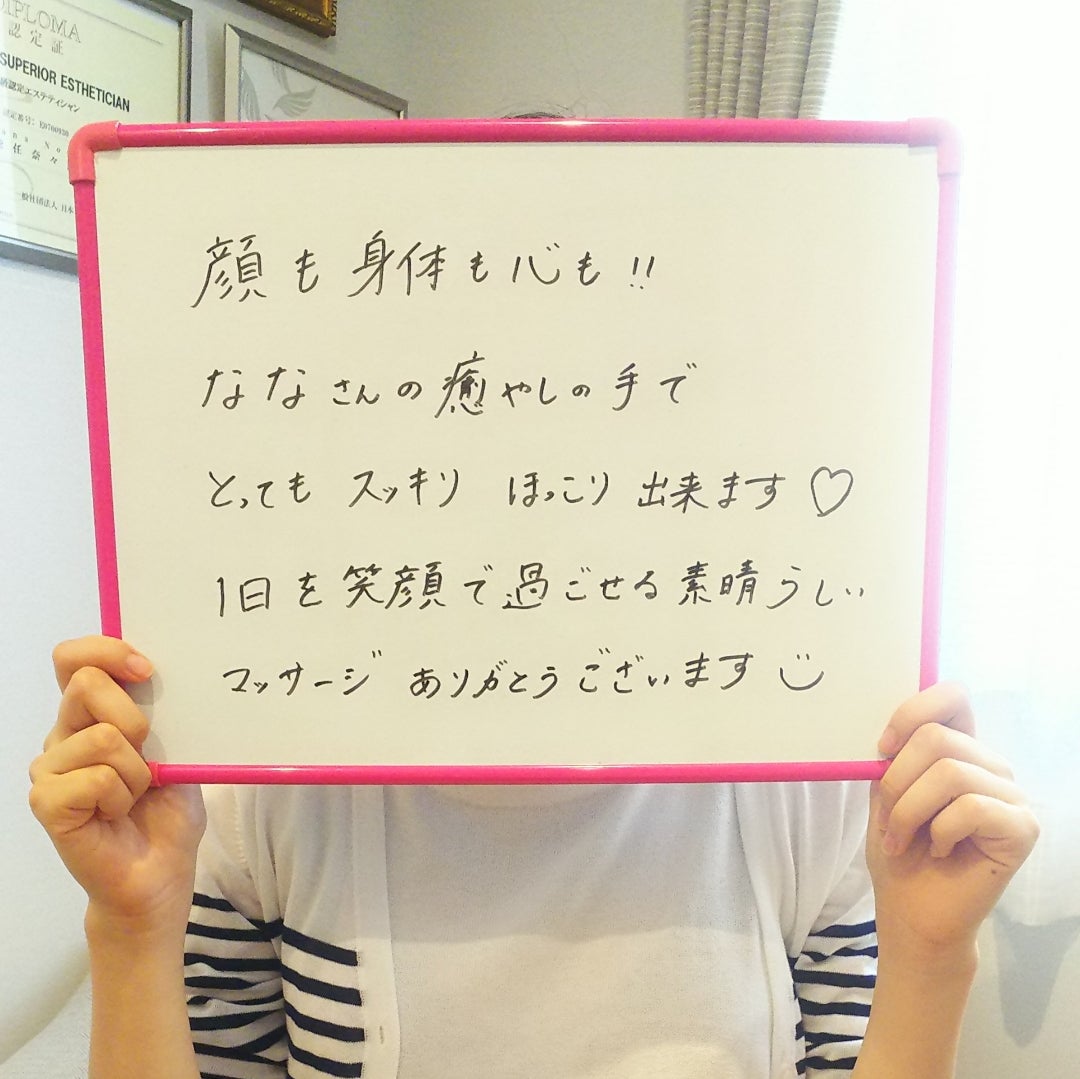 DIPLOMA
認定証
SUPERIOR ESTHETICIAN
認定エステティシャン
認定番号: E0700930
一般社団法人 日本
顔も身体も心も!!
ななさんの癒やしの手で
とっても スッキリ ほっこり 出来ます♡
1日を笑顔で過ごせる素晴らしい
マッサージ ありがとうございます